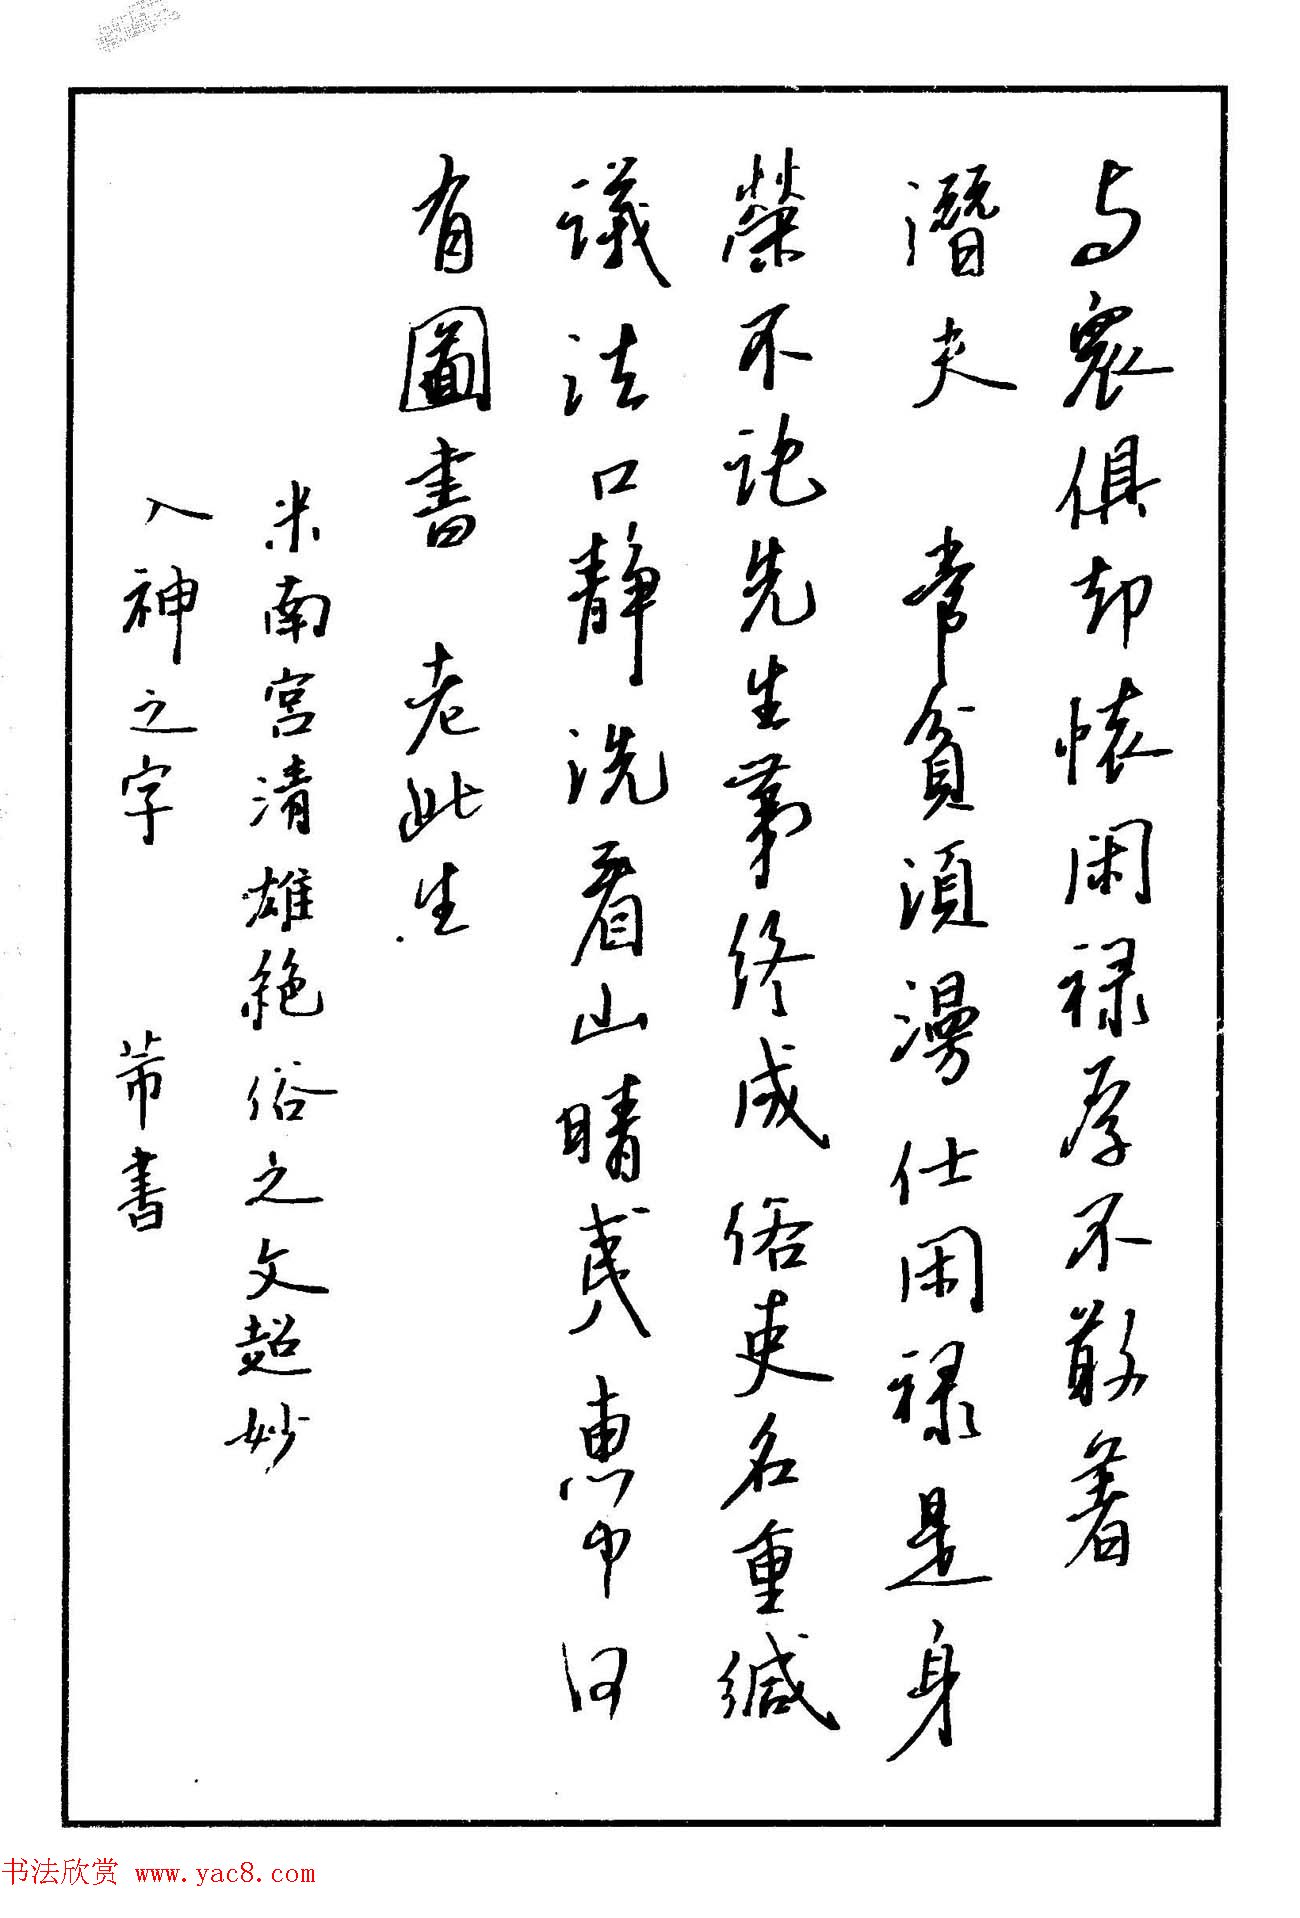 与衆俱却懷閑禄厚不敢著
潛夫 常貧須漫仕閑禄是身
榮不託先生第終成俗吏名重緘
議法口静洗看山睛夷惠中何
有圖書 老此生
米南宮清雄絶俗之文超妙
入神之字 芾書
书法欣赏 www.yac8.com